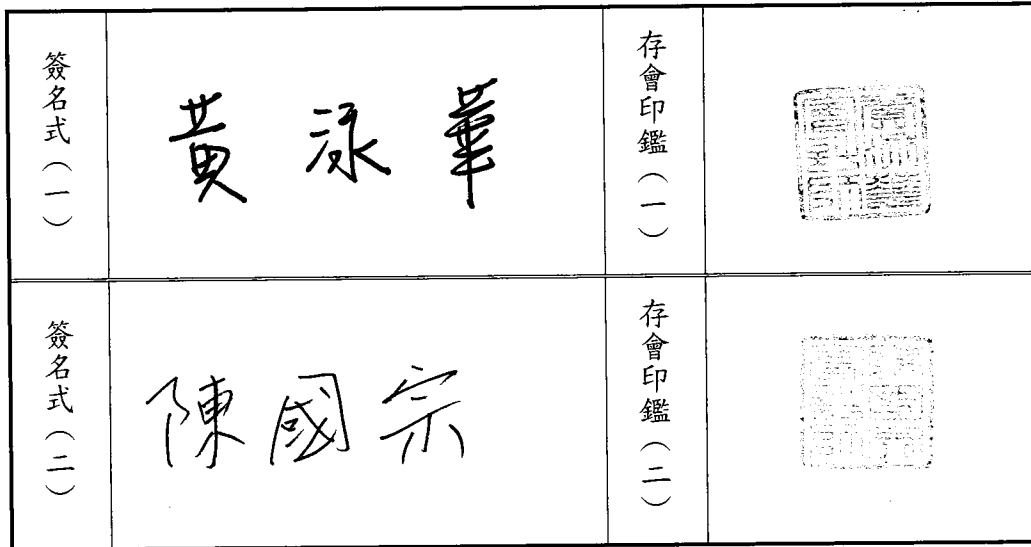 簽名式（一）
黃泳華
存會印鑑（一）
簽名式（二）
陳國宗
存會印鑑（二）